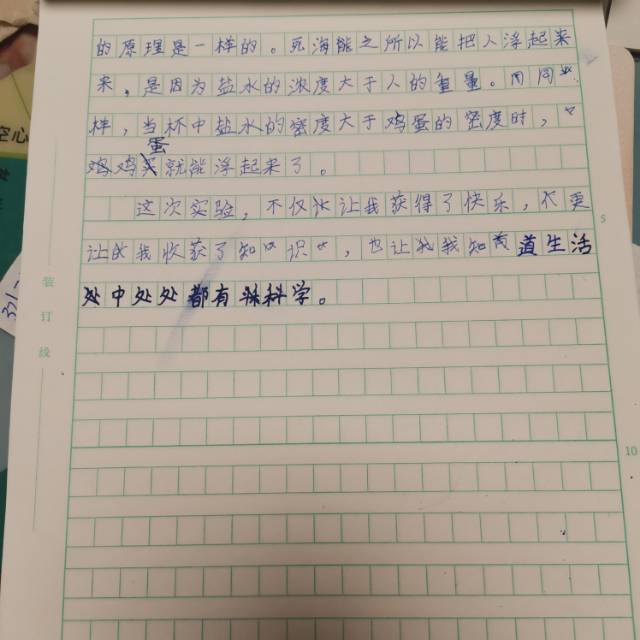 的原理是一样的。死海能之所以能把人浮起来
来,是因为盐水的浓度大于人的重量。同
样,当杯中盐水的密度大于鸡蛋的密度时,
蛋
鸡鸡就能浮起来了。
这次实验,不仅让我获得了快乐,不爱
让我收获了知识,也让我我知道生活
处中处处都有科学。
装
订
线
5
10
空心